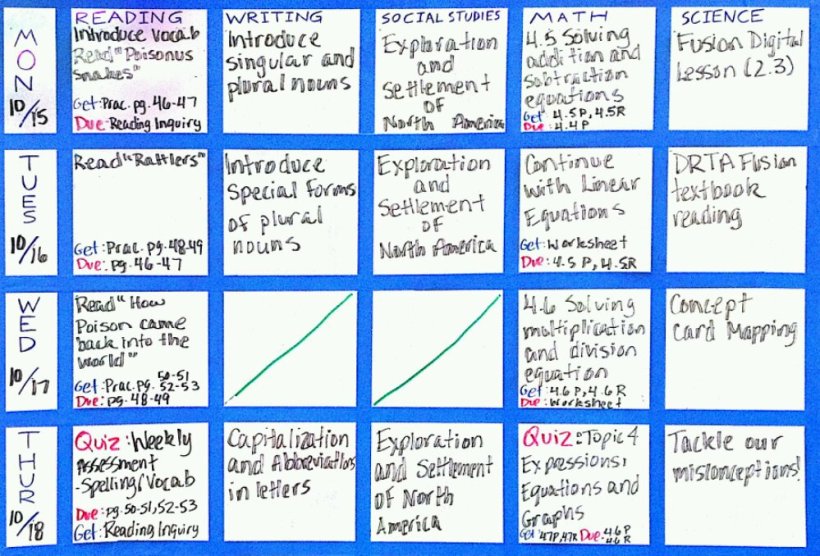 READING
WRITING
SOCIAL STUDIES
MATH
SCIENCE
MON
10/15
Introduce Vocab
Read "Poisonus
Snakes"
Get: Prac. pg. 46-47
Due: Reading Inquiry
Introduce
singular and
plural nouns
Exploration
and
Settlement
of
North America
4.5 Solving
addition and
subtraction
equations
Get 4.5P, 4.5R
Due: 4.4P
Fusion Digital
Lesson (2.3)
TUES
10/16
Read "Rattlers"
Get: Prac. pg. 48-49
Due: pg. 46-47
Introduce
Special forms
of plural
nouns
Exploration
and
Settlement
of
North America
Continue
with Linear
Equations
Get: Worksheet
Due: 4.5 P, 4.5R
DRTA Fusion
textbook
reading
WED
10/17
Read "How
Poison came
back into the
world"
50-51
Get: Prac. pg. 52-53
Due: pg. 48-49
4.6 Solving
multiplication
and division
equation
Get: 4.6P, 4.6R
Due: Worksheet
Concept
Card Mapping
THUR
10/18
Quiz: Weekly
Assessment
-Spelling/Vocab
Due: pg. 50-51, 52-53
Get: Reading Inquiry
Capitalization
and Abbreviations
in letters
Exploration
and Settlement
of North
America
Quiz: Topic 4
Expressions,
Equations and
Graphs
Get: 4.7P, 4.7R Due: 4.6P
4.6R
Tackle our
misconceptions!